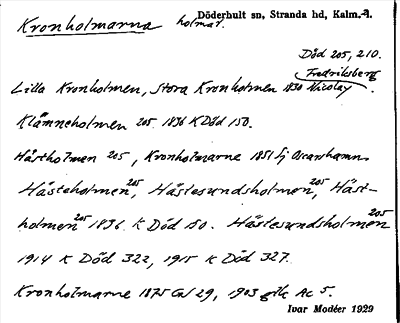 Kronholmarna holmar. Döderhult sn, Stranda hd, Kalm. l.
Död 205, 210.
Fredriksberg
Lilla Kronholmen, Stora Kronholmen 1830 Nicolay.
Klämneholmen 205 1836 K Död 150.
Håstholmen 205, Kronholmarne 1851 Sj Oscarshamn
Hästeholmen 205, Hästesundsholmen 205, Häst-
holmen 205 1836 K Död 150. Hästesundsholmen 205
1914 K Död 322, 1915 K Död 327.
Kronholmarne 1875 29, 1903 Ac 5.
Ivar Modéer 1929